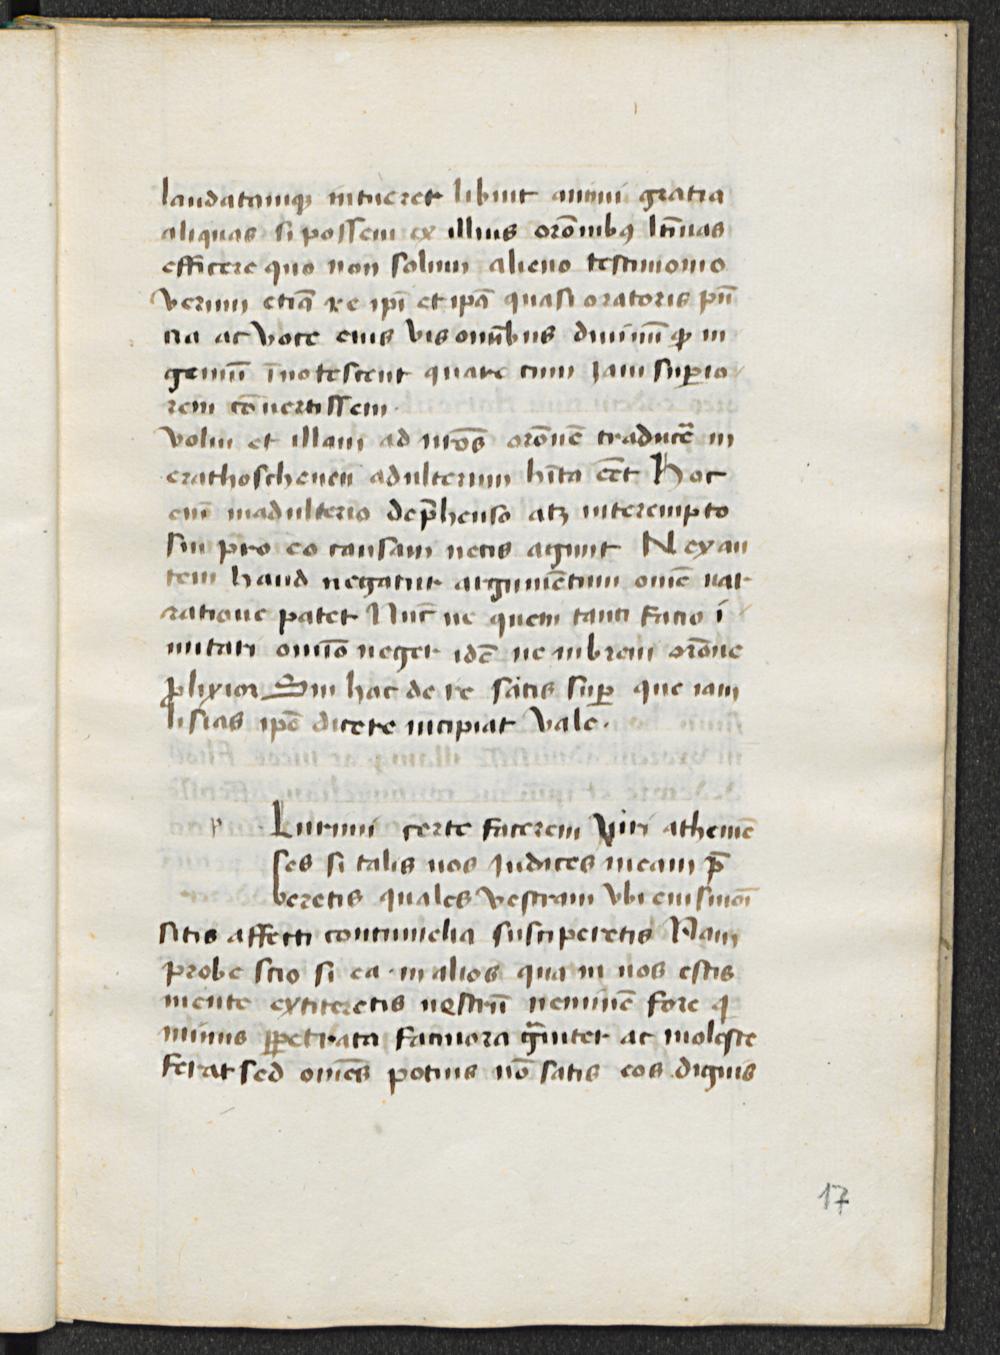 laudatamq; intueret libuit animi gratia
aliquas si possem ex illius or̄onibꝯ lr̄inas
efficere quo non solum alieno testimonio
verum etiā re ip̄i et ip̄a quasi oratoris pn̄
tia ac voce eius vis om̄ibus diuinū qꝫ in
geniū īnotescerit quare cum Jam suꝑio
rem cōuertissem.
volui et illam ad nr̄os or̄onē traducē̄ in
erathosthenē adulterum hīta eēt Hoc
enī inadulterio dep̄henso atqꝫ interempto
sui pro eo causam necis agunt Nex au
tem haud negatur argumētum om̄e nar
ratione patet Nuc̄ ne quem tanti facio ī
mitari om̄io neget idē ne in brem or̄one
ꝓlixior Sim hac de re satis suꝑ que iam
lisias ip̄e dicere incipiat vale.
p Lurimi certe facerem viri athenīē
ses si talis vos Judices meam p̄
beretis quales vestram vbi eiusmōi
sitis affecti contumelia susciperetis Nam
probe scio si ea in alios qua in vos estis
mente extiteretis vestrū neminē fore qͥ
minus ꝑpetrata facinora gͣuiter ac moleste
ferat sed om̄es potius nō satis eos dignis
17